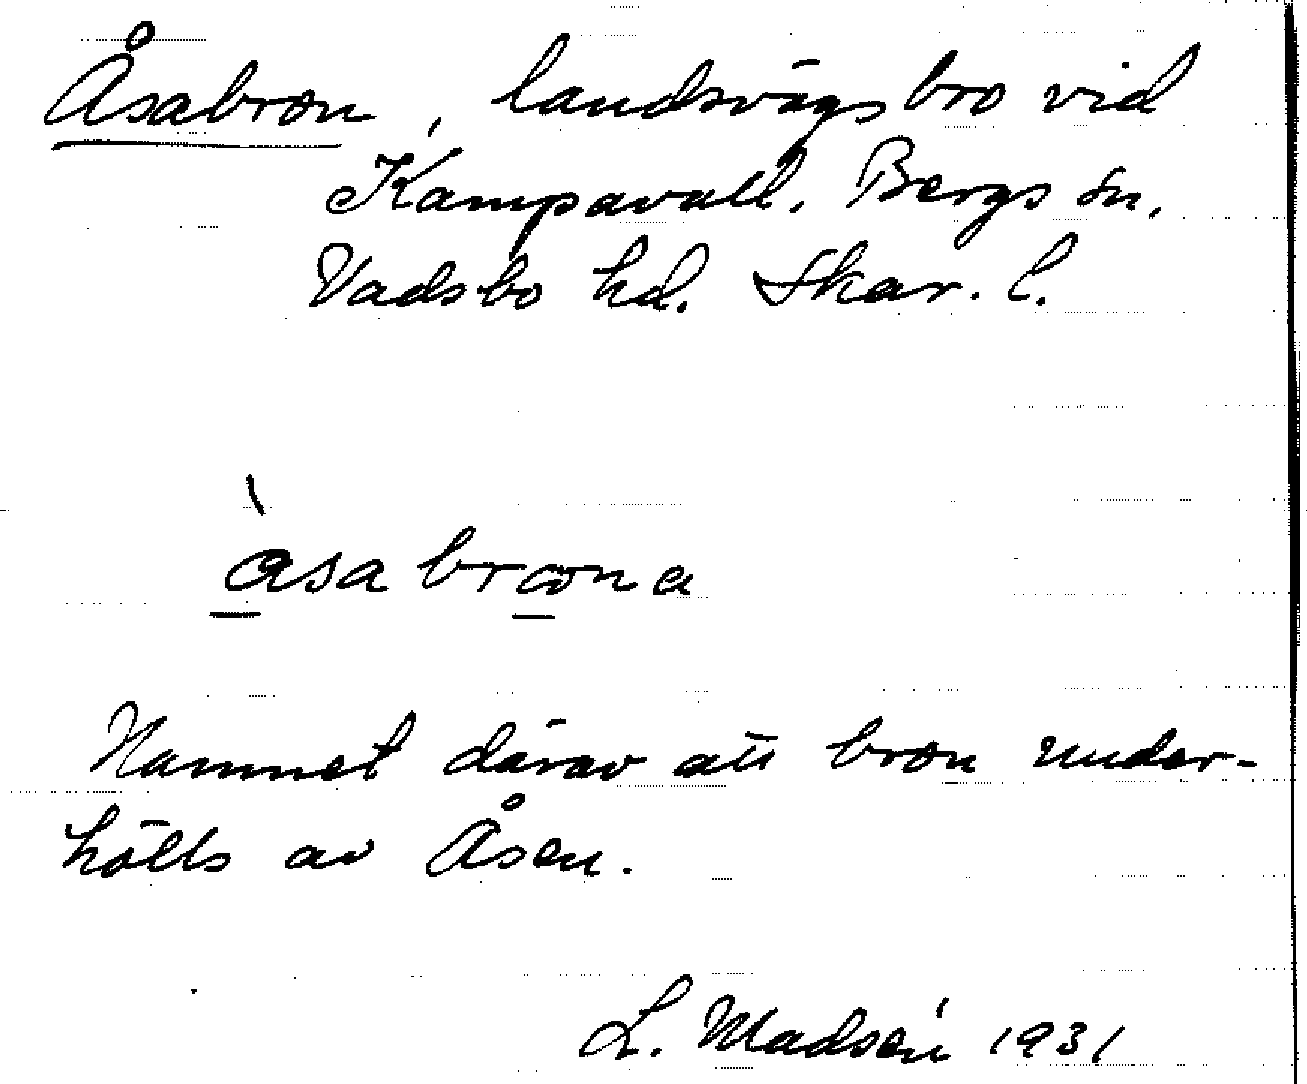 Åsabron, landsvägsbro vid
Kampavall. Bergs sn.
Vadsbo hd. Skar. l.
àsabrona
Namnet därav att bron under-
hölls av Åsen.
L. Madsén 1931